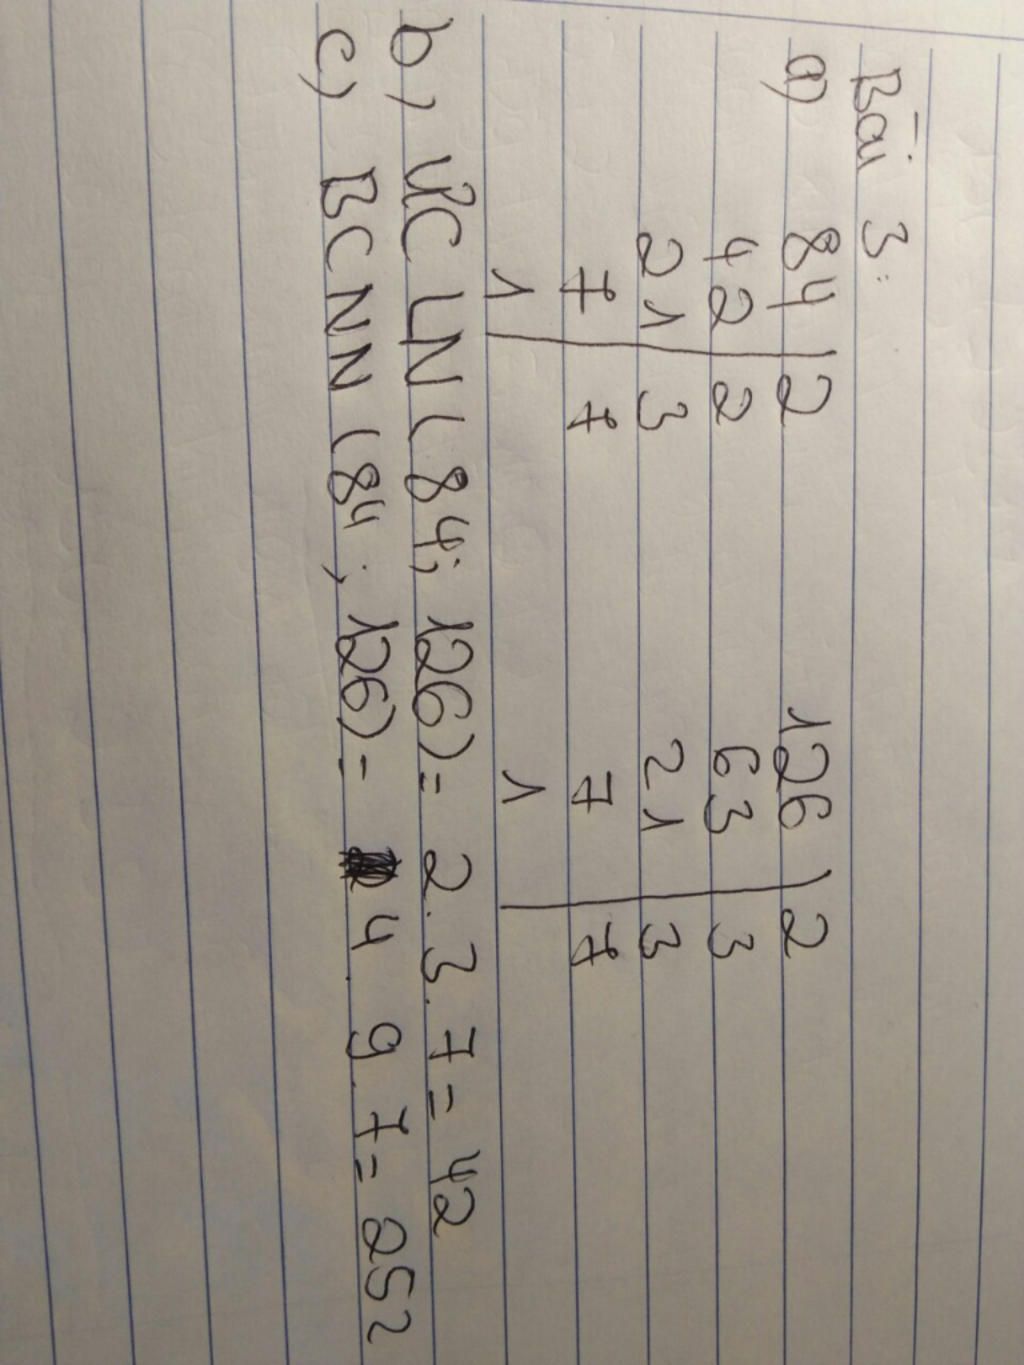 Bài 3:
a) 84 | 2 126 | 2
42 | 2 63 | 3
21 | 3 21 | 3
7 | 7 7 | 7
1 | 1 |
b, ƯCLN (84; 126) = 2.3.7 = 42
c) BCNN (84; 126) = 4.9.7 = 252